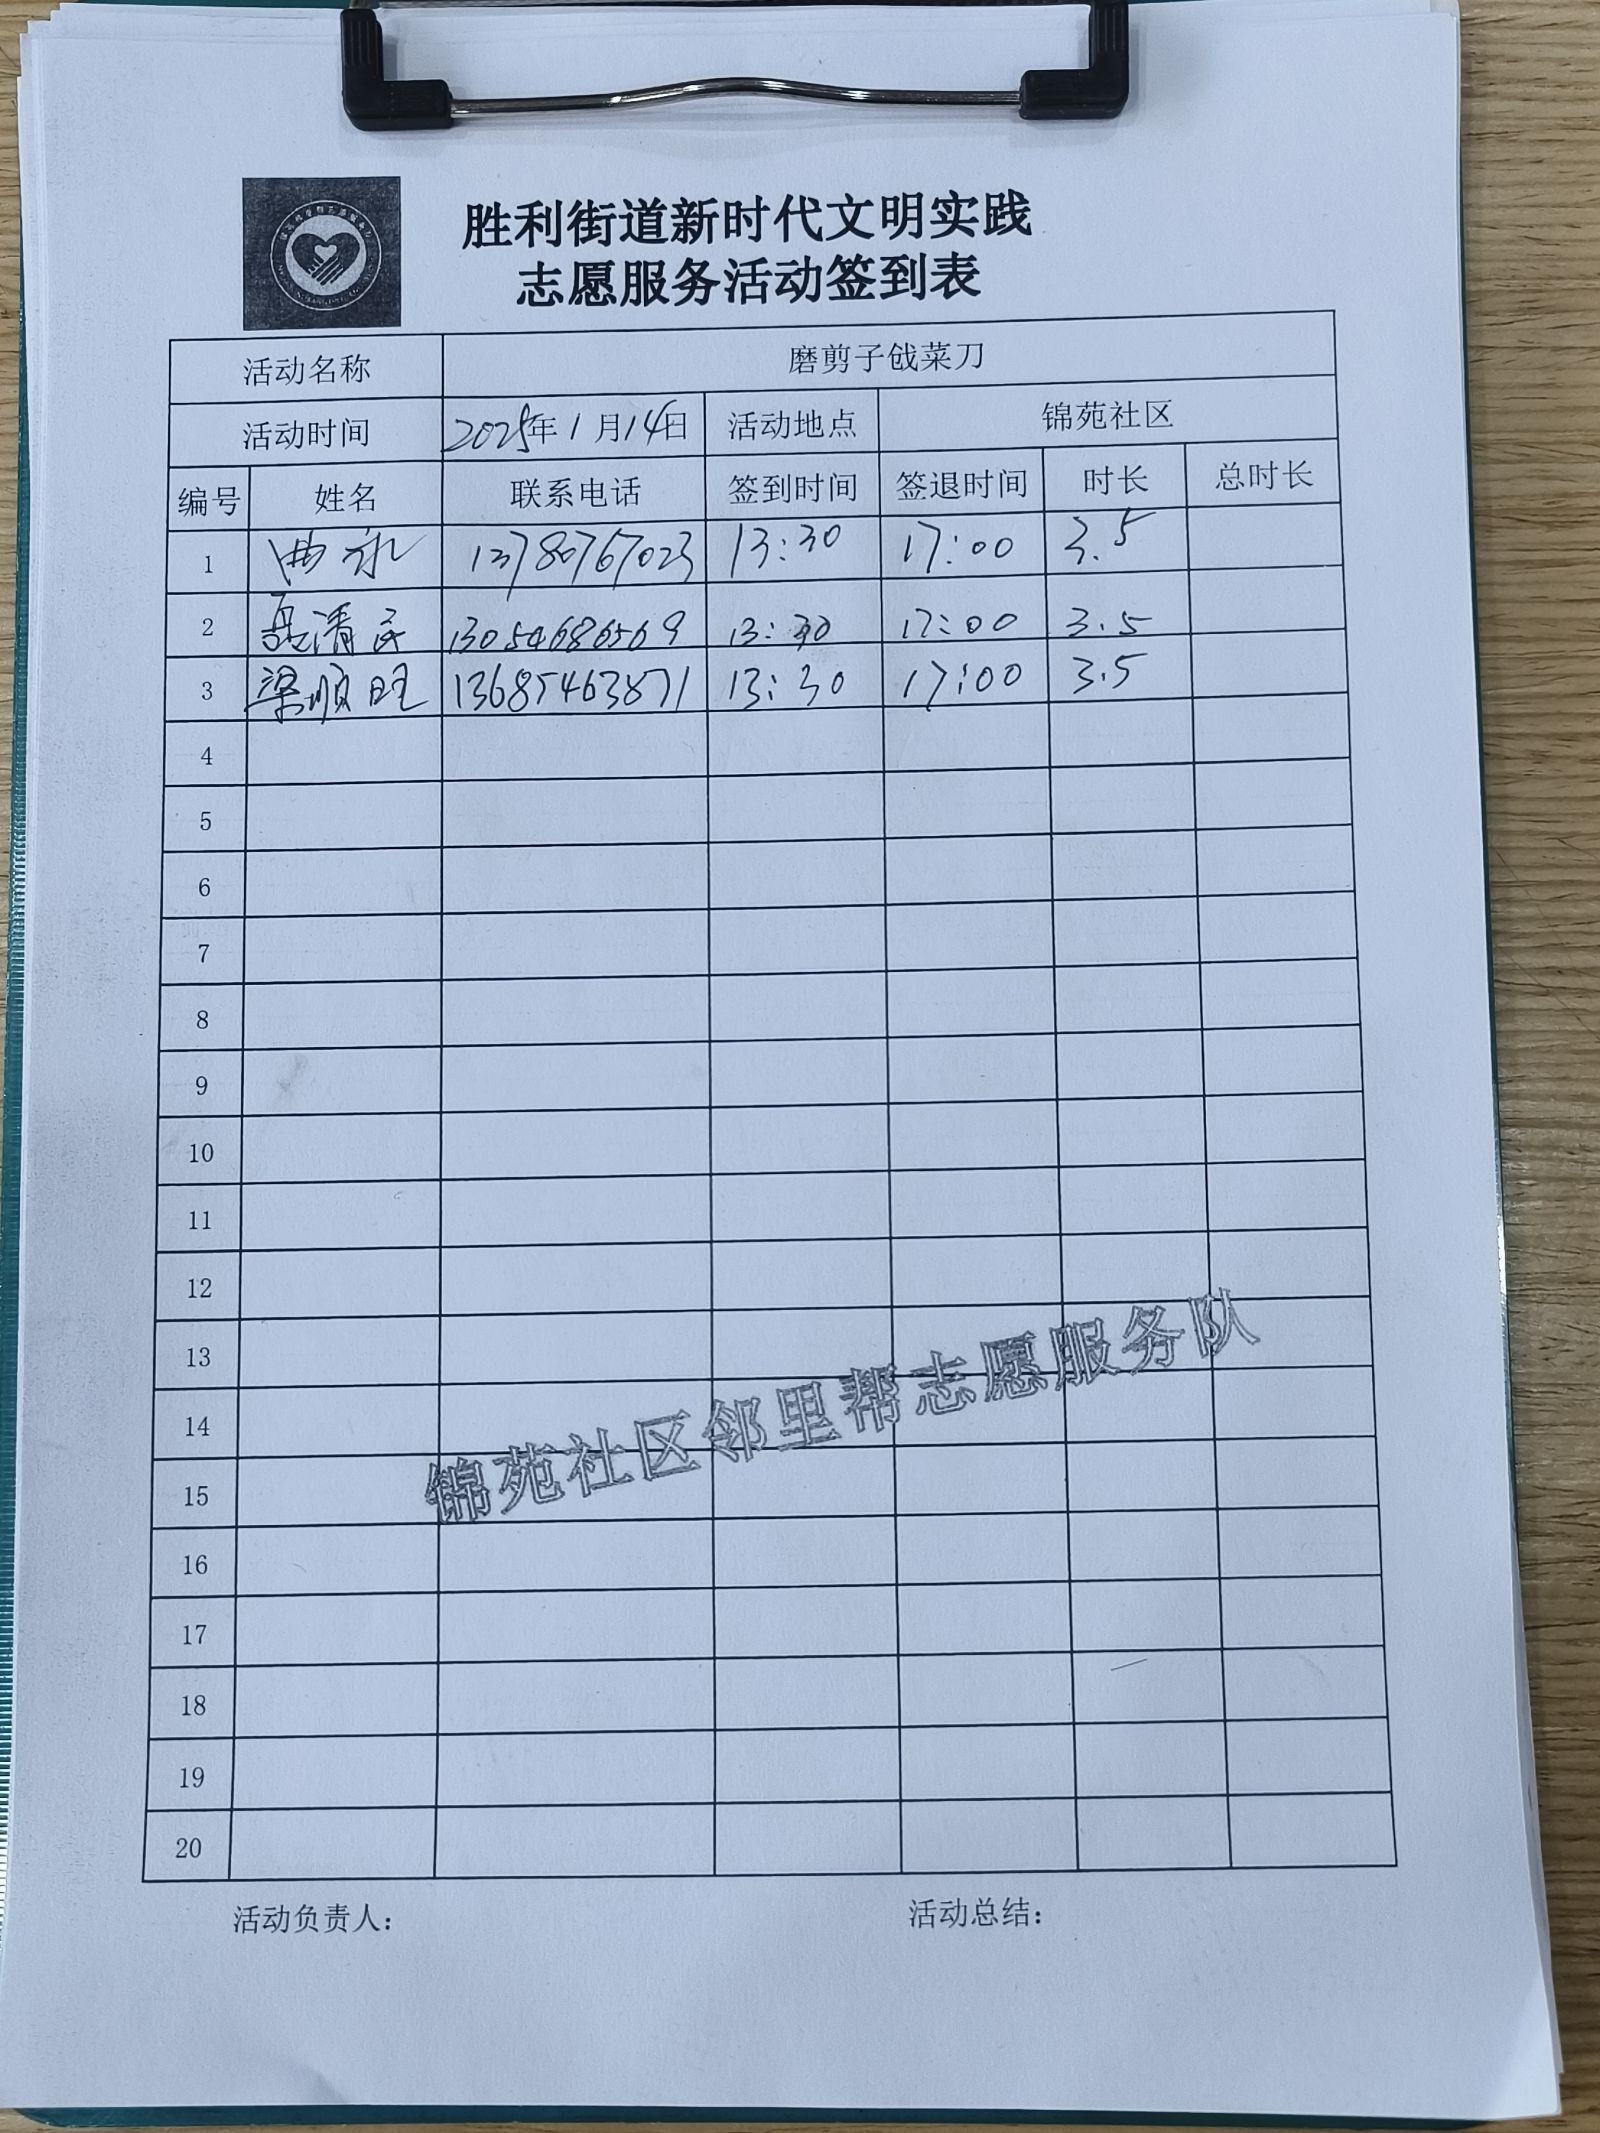 胜利街道新时代文明实践
志愿服务活动签到表
活动名称 磨剪子戗菜刀
活动时间 2025年1月14日 活动地点 锦苑社区
编号 姓名 联系电话 签到时间 签退时间 时长 总时长
1 曲永 13780767023 13:30 17:00 3.5
2 清 13054686569 13:30 17:00 3.5
3 梁顺旺 13685463871 13:30 17:00 3.5
4
5
6
7
8
9
10
11
12
13
14
15
16
17
18
19
20
锦苑社区邻里帮志愿服务队
活动负责人: 活动总结: